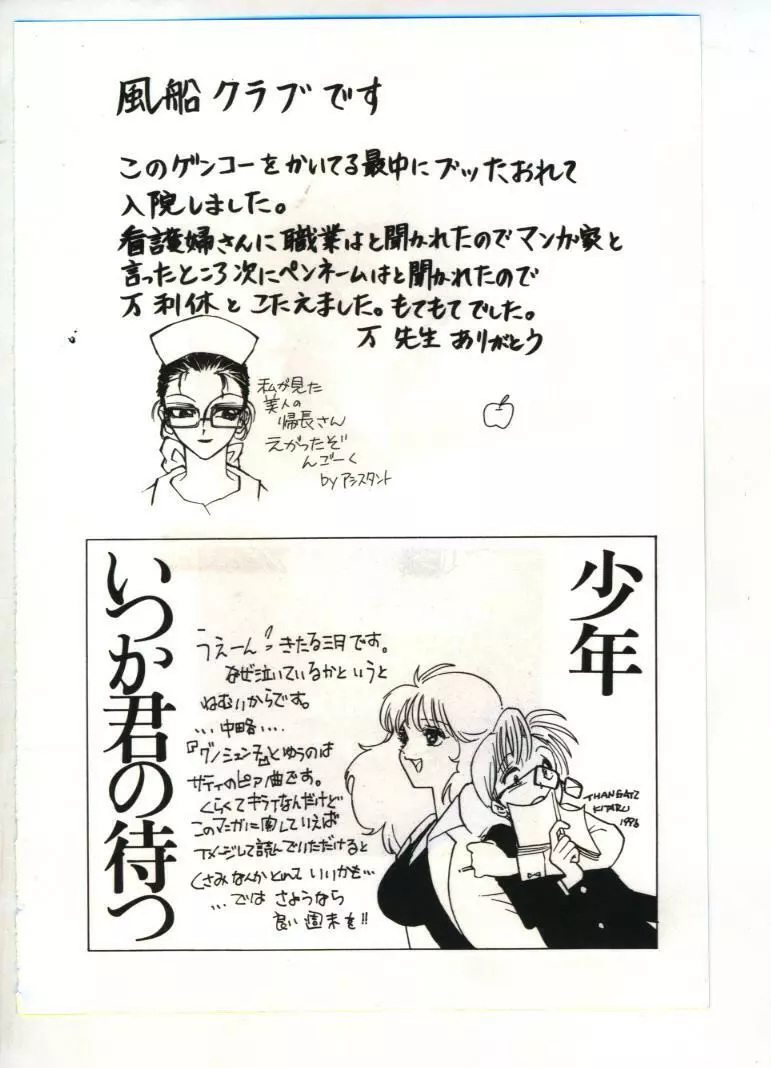 風船クラブです
このゲンコーをかいてる最中にブッたおれて
入院しました。
看護婦さんに職業はと聞かれたのでマンガ家と
言ったところ次にペンネームはと聞かれたので
万利休とこたえました。もてもてでした。
万先生ありがとう
私が見た
美人の
帰長さん
えがったぞ
んごーく
byアシスタント
少年
いつか君の待つ
うえーん!きたる三月です。
なぜ泣いているかというと
ねむいからです。
...中略...
『グノシェンヌ』とゆうのは
サティのピアノ曲です。
くらくてキライなんだけど
このマンガに関していえば
イメージして読んでいただけると
くさみなんかとれて いいかも...
...では さようなら
良い週末を!!
KITARU
1996